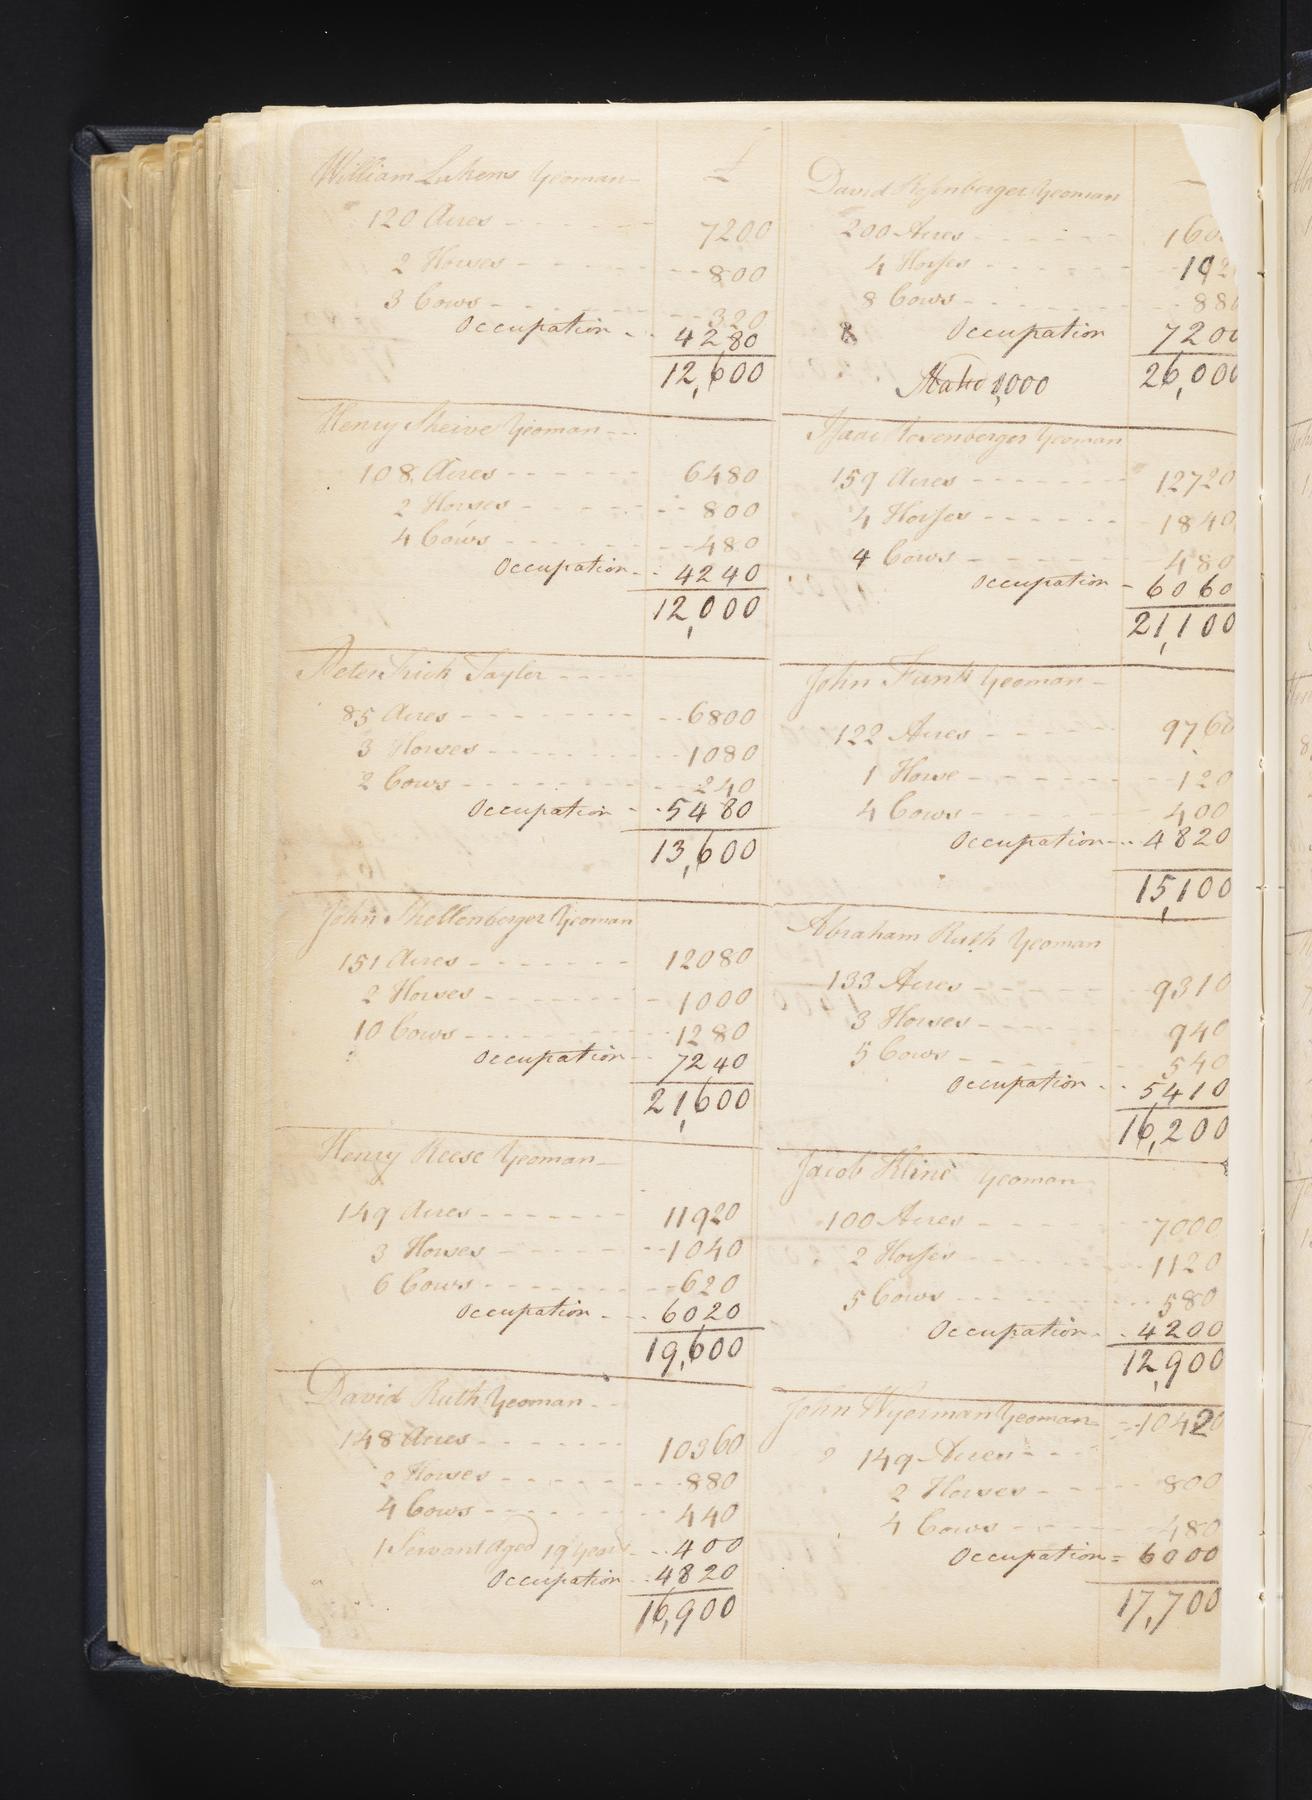 £
William Lukens Yeoman
120 Acres 7200
2 Horses 800
3 Cows 320
Occupation 4280
12,600
Henry Sheive Yeoman
108 Acres 6480
2 Horses 800
4 Cows 480
Occupation 4240
12,000
Peter Frick Taylor
85 Acres 6800
3 Horses 1080
2 Cows 240
Occupation 5480
13,600
John Shellenberger Yeoman
151 Acres 12080
2 Horses 1000
10 Cows 1280
Occupation 7240
21,600
Henry Reese Yeoman
149 Acres 11920
3 Horses 1040
6 Cows 620
Occupation 6020
19,600
David Ruth Yeoman
148 Acres 10360
2 Horses 880
4 Cows 440
1 Servant aged 19 years 400
Occupation 4820
16,900
David Yeoman
200 Acres 160
4 Horses 192
8 Cows 880
8 Occupation 7200
1,000 26,000
Isaac Rosenberger Yeoman
159 Acres 12720
4 Horses 1840
4 Cows 480
Occupation 6060
21,100
John Funk Yeoman
122 Acres 9760
1 Horse 120
4 Cows 400
Occupation 4820
15,100
Abraham Ruth Yeoman
133 Acres 9310
3 Horses 940
5 Cows 540
Occupation 5410
16,200
Jacob Kline Yeoman
100 Acres 7000
2 Horses 1120
5 Cows 580
Occupation 4200
12,900
John Wyerman Yeoman 10420
149 Acres
2 Horses 800
4 Cows 480
Occupation 6000
17,700